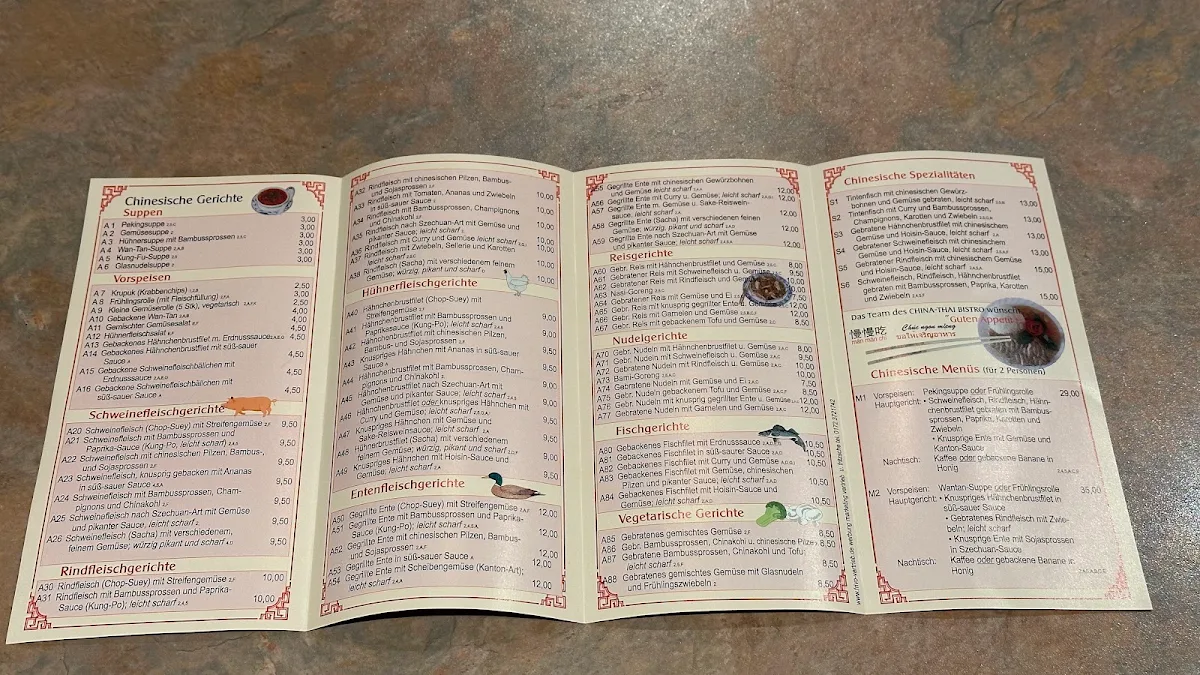 Chinesische Gerichte
Suppen
A 1 Pekingsuppe 3,00
A 2 Gemüsesuppe 3,00
A 3 Hühnersuppe mit Bambussprossen 3,00
A 4 Wan-Tan-Suppe 3,00
A 5 Kung-Fu-Suppe 3,00
A 6 Glasnudelsuppe 3,00
Vorspeisen
A 7 Krupuk (Krabbenchips) 2,50
A 8 Frühlingsrolle (mit Fleischfüllung) 3,00
A 9 Kleine Gemüserolle (5 Stk), vegetarisch 2,50
A10 Gebackene Wan-Tan 4,00
A11 Gemischter Gemüsesalat
A12 Hühnerfleischsalat
A13 Gebackenes Hähnchenbrustfilet m. Erdnusssauce
A14 Gebackenes Hähnchenbrustfilet mit süß-sauer
Sauce 4,50
A15 Gebackene Schweinefleischbällchen mit
Erdnusssauce 4,50
A16 Gebackene Schweinefleischbällchen mit
süß-sauer Sauce 4,50
Schweinefleischgerichte
A20 Schweinefleisch (Chop-Suey) mit Streifengemüse 9,50
A21 Schweinefleisch mit Bambussprossen und
Paprika-Sauce (Kung-Po, leicht scharf) 9,50
A22 Schweinefleisch mit chinesischen Pilzen, Bambus-,
und Sojasprossen 9,50
A23 Schweinefleisch, knusprig gebacken mit Ananas
in süß-sauer Sauce 9,50
A24 Schweinefleisch mit Bambussprossen, Cham-
pignons und Chinakohl 9,50
A25 Schweinefleisch nach Szechuan-Art mit Gemüse
und pikanter Sauce, leicht scharf 9,50
A26 Schweinefleisch (Sacha) mit verschiedenem,
feinem Gemüse; würzig pikant und scharf 9,50
Rindfleischgerichte
A30 Rindfleisch (Chop-Suey) mit Streifengemüse 10,00
A31 Rindfleisch mit Bambussprossen und Paprika-
Sauce (Kung-Po); leicht scharf 10,00
A32 Rindfleisch mit chinesischen Pilzen, Bambus-
und Sojasprossen 10,00
A33 Rindfleisch mit Tomaten, Ananas und Zwiebeln
in süß-sauer Sauce 10,00
A34 Rindfleisch mit Bambussprossen, Champignons
und Chinakohl 10,00
A35 Rindfleisch nach Szechuan-Art mit Gemüse und
pikanter Sauce, leicht scharf 10,00
A36 Rindfleisch mit Curry und Gemüse leicht scharf 10,00
A37 Rindfleisch mit Zwiebeln, Sellerie und Karotten
leicht scharf 10,00
A38 Rindfleisch (Sacha) mit verschiedenem feinem
Gemüse; würzig, pikant und scharf 10,00
Hühnerfleischgerichte
A40 Hähnenbrustfilet (Chop-Suey) mit
Streifengemüse 9,50
A41 Hähnchenbrustfilet mit Bambussprossen und
Paprikasauce (Kung-Po); leicht scharf 9,50
A42 Hähnchenbrustfilet mit chinesischen Pilzen,
Bambus- und Sojasprossen 9,50
A43 Knuspriges Hähnchen mit Ananas in süß-sauer
Sauce 9,50
A44 Hähnchenbrustfilet mit Bambussprossen, Cham-
pignons und Chinakohl 9,50
A45 Hähnchenbrustfilet nach Szechuan-Art mit
Gemüse und pikanter Sauce; leicht scharf 9,50
A46 Hähnchenbrustfilet oder knuspriges Hähnchen mit
Curry und Gemüse; leicht scharf 9,50
A47 Knuspriges Hähnchen mit Gemüse und
Sake-Reisweinsauce; leicht scharf 9,50
A48 Hühnerbrustfilet (Sacha) mit verschiedenem
feinem Gemüse; würzig, pikant und scharf 9,50
A49 Knuspriges Hähnchen mit Hoisin-Sauce und
Gemüse; leicht scharf 9,50
Entenfleischgerichte
A50 Gegrillte Ente (Chop-Suey) mit Streifengemüse 12,00
A51 Gegrillte Ente mit Bambussprossen und Paprika-
Sauce (Kung-Po); leicht scharf 12,00
A52 Gegrillte Ente mit chinesischen Pilzen, Bambus-
und Sojasprossen 12,00
A53 Gegrillte Ente in süß-sauer Sauce 12,00
A54 Gegrillte Ente mit Scheibengemüse (Kanton-Art);
leicht scharf 12,00
A55 Gegrillte Ente mit chinesischen Gewürzbohnen
und Gemüse leicht scharf 12,00
A56 Gegrillte Ente mit Curry u. Gemüse; leicht scharf 12,00
A57 Gegrillte Ente m. Gemüse u. Sake-Reiswein-
sauce, leicht scharf 12,00
A58 Gegrillte Ente (Sacha) mit verschiedenen feinen
Gemüse; würzig, pikant und scharf 12,00
A59 Gegrillte Ente nach Szechuan-Art mit Gemüse
und pikanter Sauce; leicht scharf 12,00
Reisgerichte
A60 Gebr. Reis mit Hähnchenbrustfilet und Gemüse 8,00
A61 Gebratener Reis mit Schweinefleisch u. Gemüse 9,50
A62 Gebratener Reis mit Rindfleisch und Gemüse
A63 Nasi-Goreng
A64 Gebratener Reis mit Gemüse und Ei 7,50
A65 Gebr. Reis mit knusprig gegrillter Ente u. Gemüse
A66 Gebr. Reis mit Garnelen und Gemüse 12,00
A67 Gebr. Reis mit gebackenem Tofu und Gemüse 8,50
Nudelgerichte
A70 Gebr. Nudeln mit Hähnchenbrustfilet u. Gemüse 8,00
A71 Gebr. Nudeln mit Schweinefleisch u. Gemüse 9,50
A72 Gebratene Nudeln mit Rindfleisch u. Gemüse 9,50
A73 Bami-Goreng 10,00
A74 Gebratene Nudeln mit Gemüse und Ei 7,50
A75 Gebr. Nudeln mit gebackenem Tofu und Gemüse 8,50
A76 Gebr. Nudeln mit knuspriger gegrillter Ente u. Gemüse 12,00
A77 Gebratene Nudeln mit Garnelen und Gemüse 12,00
Fischgerichte
A80 Gebackenes Fischfilet mit Erdnusssauce 10,50
A81 Gebackenes Fischfilet in süß-saurer Sauce 10,50
A82 Gebackenes Fischfilet mit Curry und Gemüse 10,50
A83 Gebackenes Fischfilet mit Gemüse, chinesischen
Pilzen und pikanter Sauce; leicht scharf 10,50
A84 Gebackenes Fischfilet mit Hoisin-Sauce und
Gemüse; leicht scharf 10,50
Vegetarische Gerichte
A85 Gebratenes gemischtes Gemüse 8,50
A86 Gebr. Bambussprossen, Chinakohl u. chinesische Pilze 8,50
A87 Gebratene Bambussprossen, Chinakohl und Tofu 8,50
A88 Gebratenes gemischtes Gemüse mit Glasnudeln
und Frühlingszwiebeln 8,50
Chinesische Spezialitäten
S1 Tintenfisch mit chinesischen Gewürz-
bohnen und Gemüse gebraten, leicht scharf 13,00
S2 Tintenfisch mit Curry und Bambussprossen,
Champignons, Karotten und Zwiebeln 13,00
S3 Gebratene Hähnchenbrustfilet mit chinesischem
Gemüse und Hoisin-Sauce, leicht scharf 13,00
S4 Gebratener Schweinefleisch mit chinesischem
Gemüse und Hoisin-Sauce, leicht scharf 13,00
S5 Gebratener Rindfleisch mit chinesischem Gemüse
und Hoisin-Sauce, leicht scharf 15,00
S6 Schweinefleisch, Rindfleisch, Hähnchenbrustfilet
gebraten mit Bambussprossen, Paprika, Karotten
und Zwiebeln 15,00
Das Team des CHINA-THAI BISTRO wünscht
Guten Appetit
慢慢吃
màn màn chī
Chúc ngon miệng
ขอให้เจริญอาหาร
Chinesische Menüs (für 2 Personen)
M1 Vorspeisen: Pekingsuppe oder Frühlingsrolle 29,00
Hauptgericht: • Schweinefleisch, Rindfleisch, Hähn-
chenbrustfilet gebraten mit Bambus-
sprossen, Paprika, Karotten und
Zwiebeln
• Knusprige Ente mit Gemüse und
Kanton-Sauce
Nachtisch: Kaffee oder gebackene Banane in
Honig
M2 Vorspeisen: Wantan-Suppe oder Frühlingsrolle 35,00
Hauptgericht: • Knuspriges Hähnchenbrustfilet in
süß-sauer Sauce
• Gebratenes Rindfleisch mit Zwie-
beln; leicht scharf
• Knusprige Ente mit Sojasprossen
in Szechuan-Sauce
Nachtisch: Kaffee oder gebackene Banane in
Honig